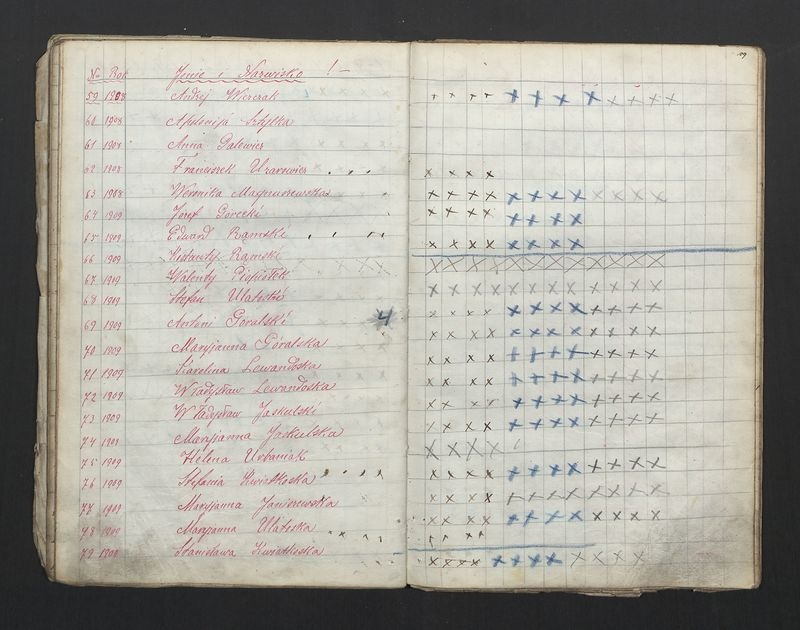 № Rok Jmie i Nazwisko !—
59 1908 Andrzej Wierczak
60 1908 Apolonija
61 1908 Anna Galewicz
62 1908 Franciszek Urarowicz
63 1908 Weronika
64 1909 Józef Górecki
65 1909 Edward Ramski
66 1909 Ramski
67 1909 Walenty
68 1909 Stefan Ulatoski
69 1909 Antoni Góralski 4
70 1909 Maryjanna Góralska
71 1909 Karolina Lewandoska
72 1909 Władysław Lewandoska
73 1909 Władysław Jaskulski
74 1909 Maryianna Jaskulska
75 1909 Helena Urbaniak
76 1909 Stefania Kwiatkoska
77 1909 Maryjanna Janiszewska
78 1909 Maryanna Ulatoska
79 1908 Stanisława Kwiatkoska